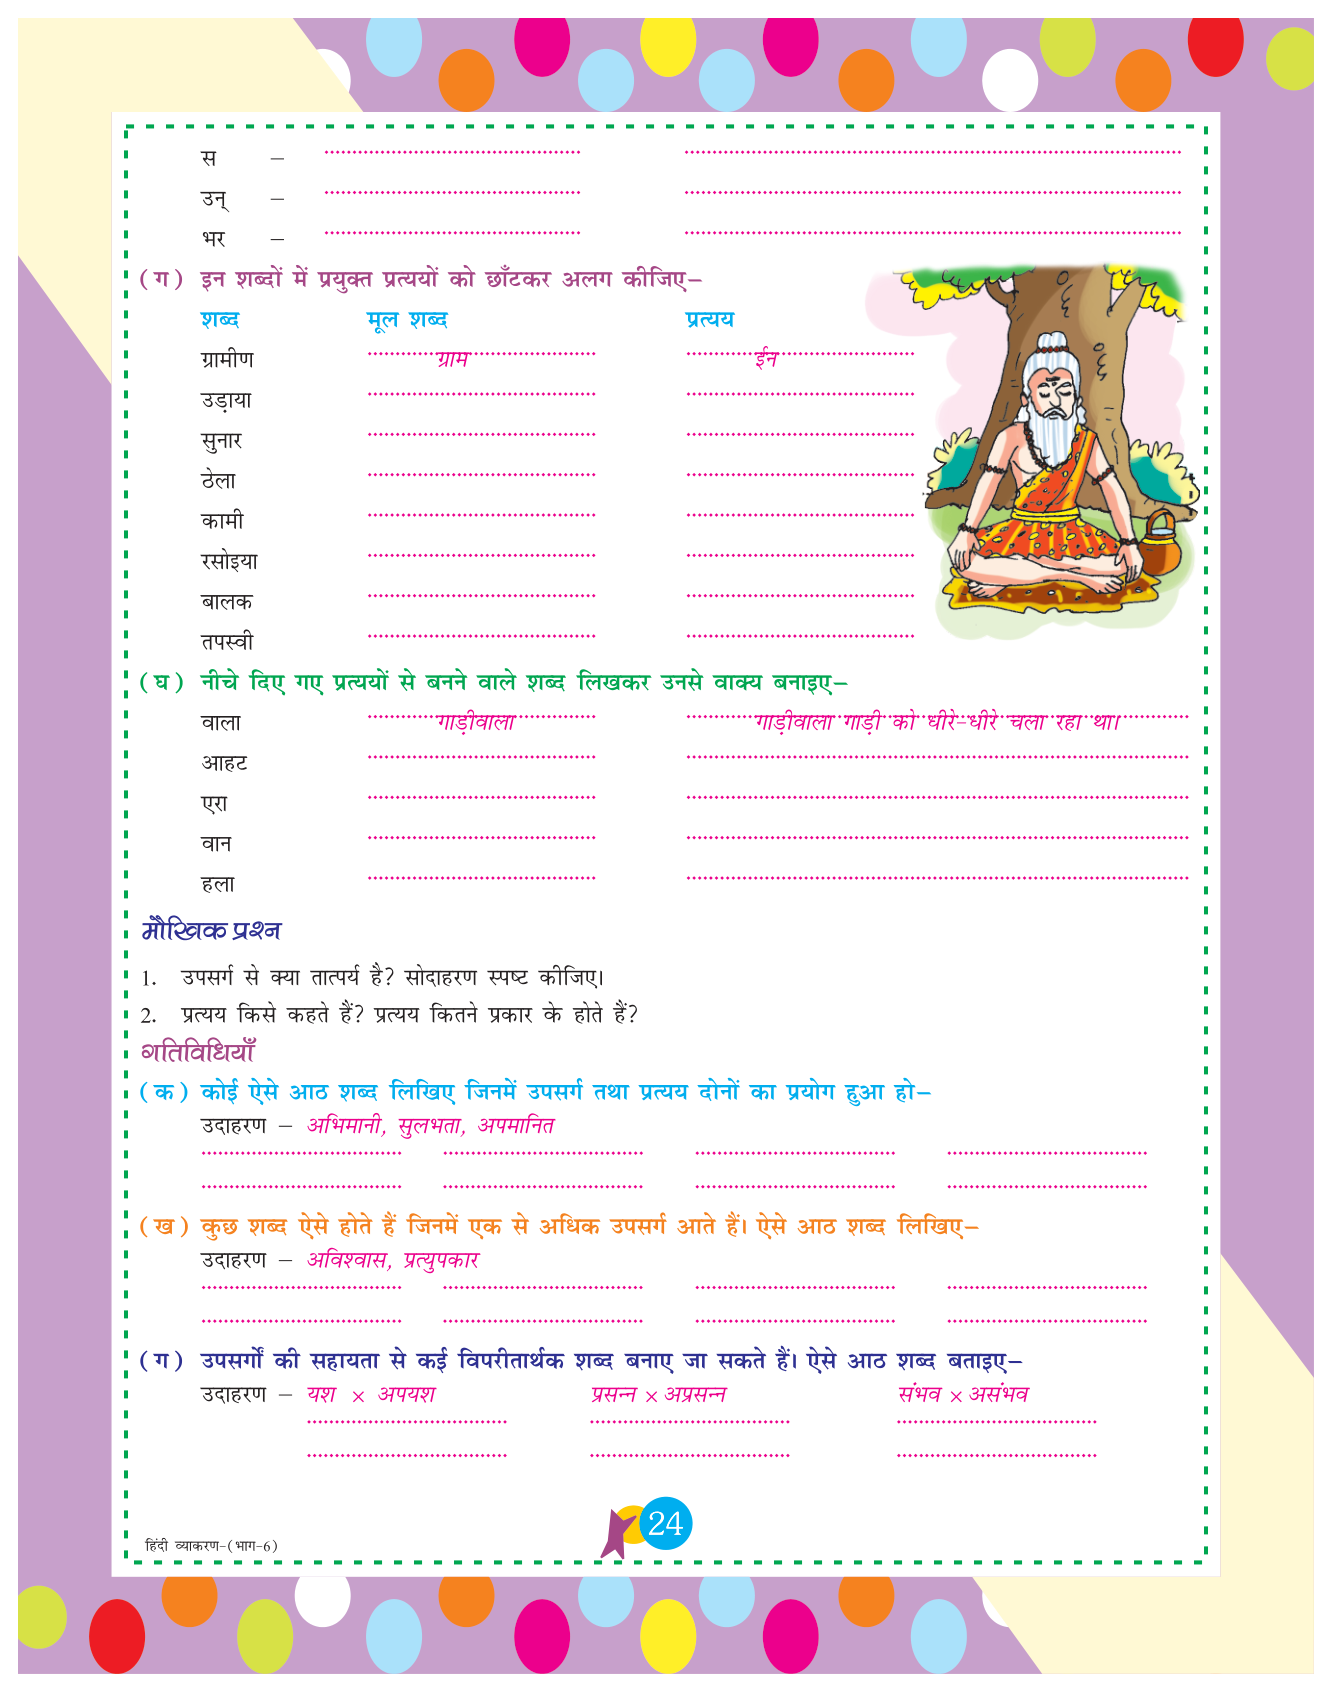 स –
उन् –
भर –
(ग) इन शब्दों में प्रयुक्त प्रत्ययों को छाँटकर अलग कीजिए–
शब्द मूल शब्द प्रत्यय
ग्रामीण ग्राम ईन
उड़ाया
सुनार
ठेला
कामी
रसोइया
बालक
तपस्वी
(घ) नीचे दिए गए प्रत्ययों से बनने वाले शब्द लिखकर उनसे वाक्य बनाइए–
वाला गाड़ीवाला गाड़ीवाला गाड़ी को धीरे-धीरे चला रहा था।
आहट
एरा
वान
हला
मौखिक प्रश्न
1. उपसर्ग से क्या तात्पर्य है? सोदाहरण स्पष्ट कीजिए।
2. प्रत्यय किसे कहते हैं? प्रत्यय कितने प्रकार के होते हैं?
गतिविधियाँ
(क) कोई ऐसे आठ शब्द लिखिए जिनमें उपसर्ग तथा प्रत्यय दोनों का प्रयोग हुआ हो–
उदाहरण – अभिमानी, सुलभता, अपमानित
(ख) कुछ शब्द ऐसे होते हैं जिनमें एक से अधिक उपसर्ग आते हैं। ऐसे आठ शब्द लिखिए–
उदाहरण – अविश्वास, प्रत्युपकार
(ग) उपसर्गों की सहायता से कई विपरीतार्थक शब्द बनाए जा सकते हैं। ऐसे आठ शब्द बताइए–
उदाहरण – यश × अपयश प्रसन्न × अप्रसन्न संभव × असंभव
24
हिंदी व्याकरण-(भाग-6)